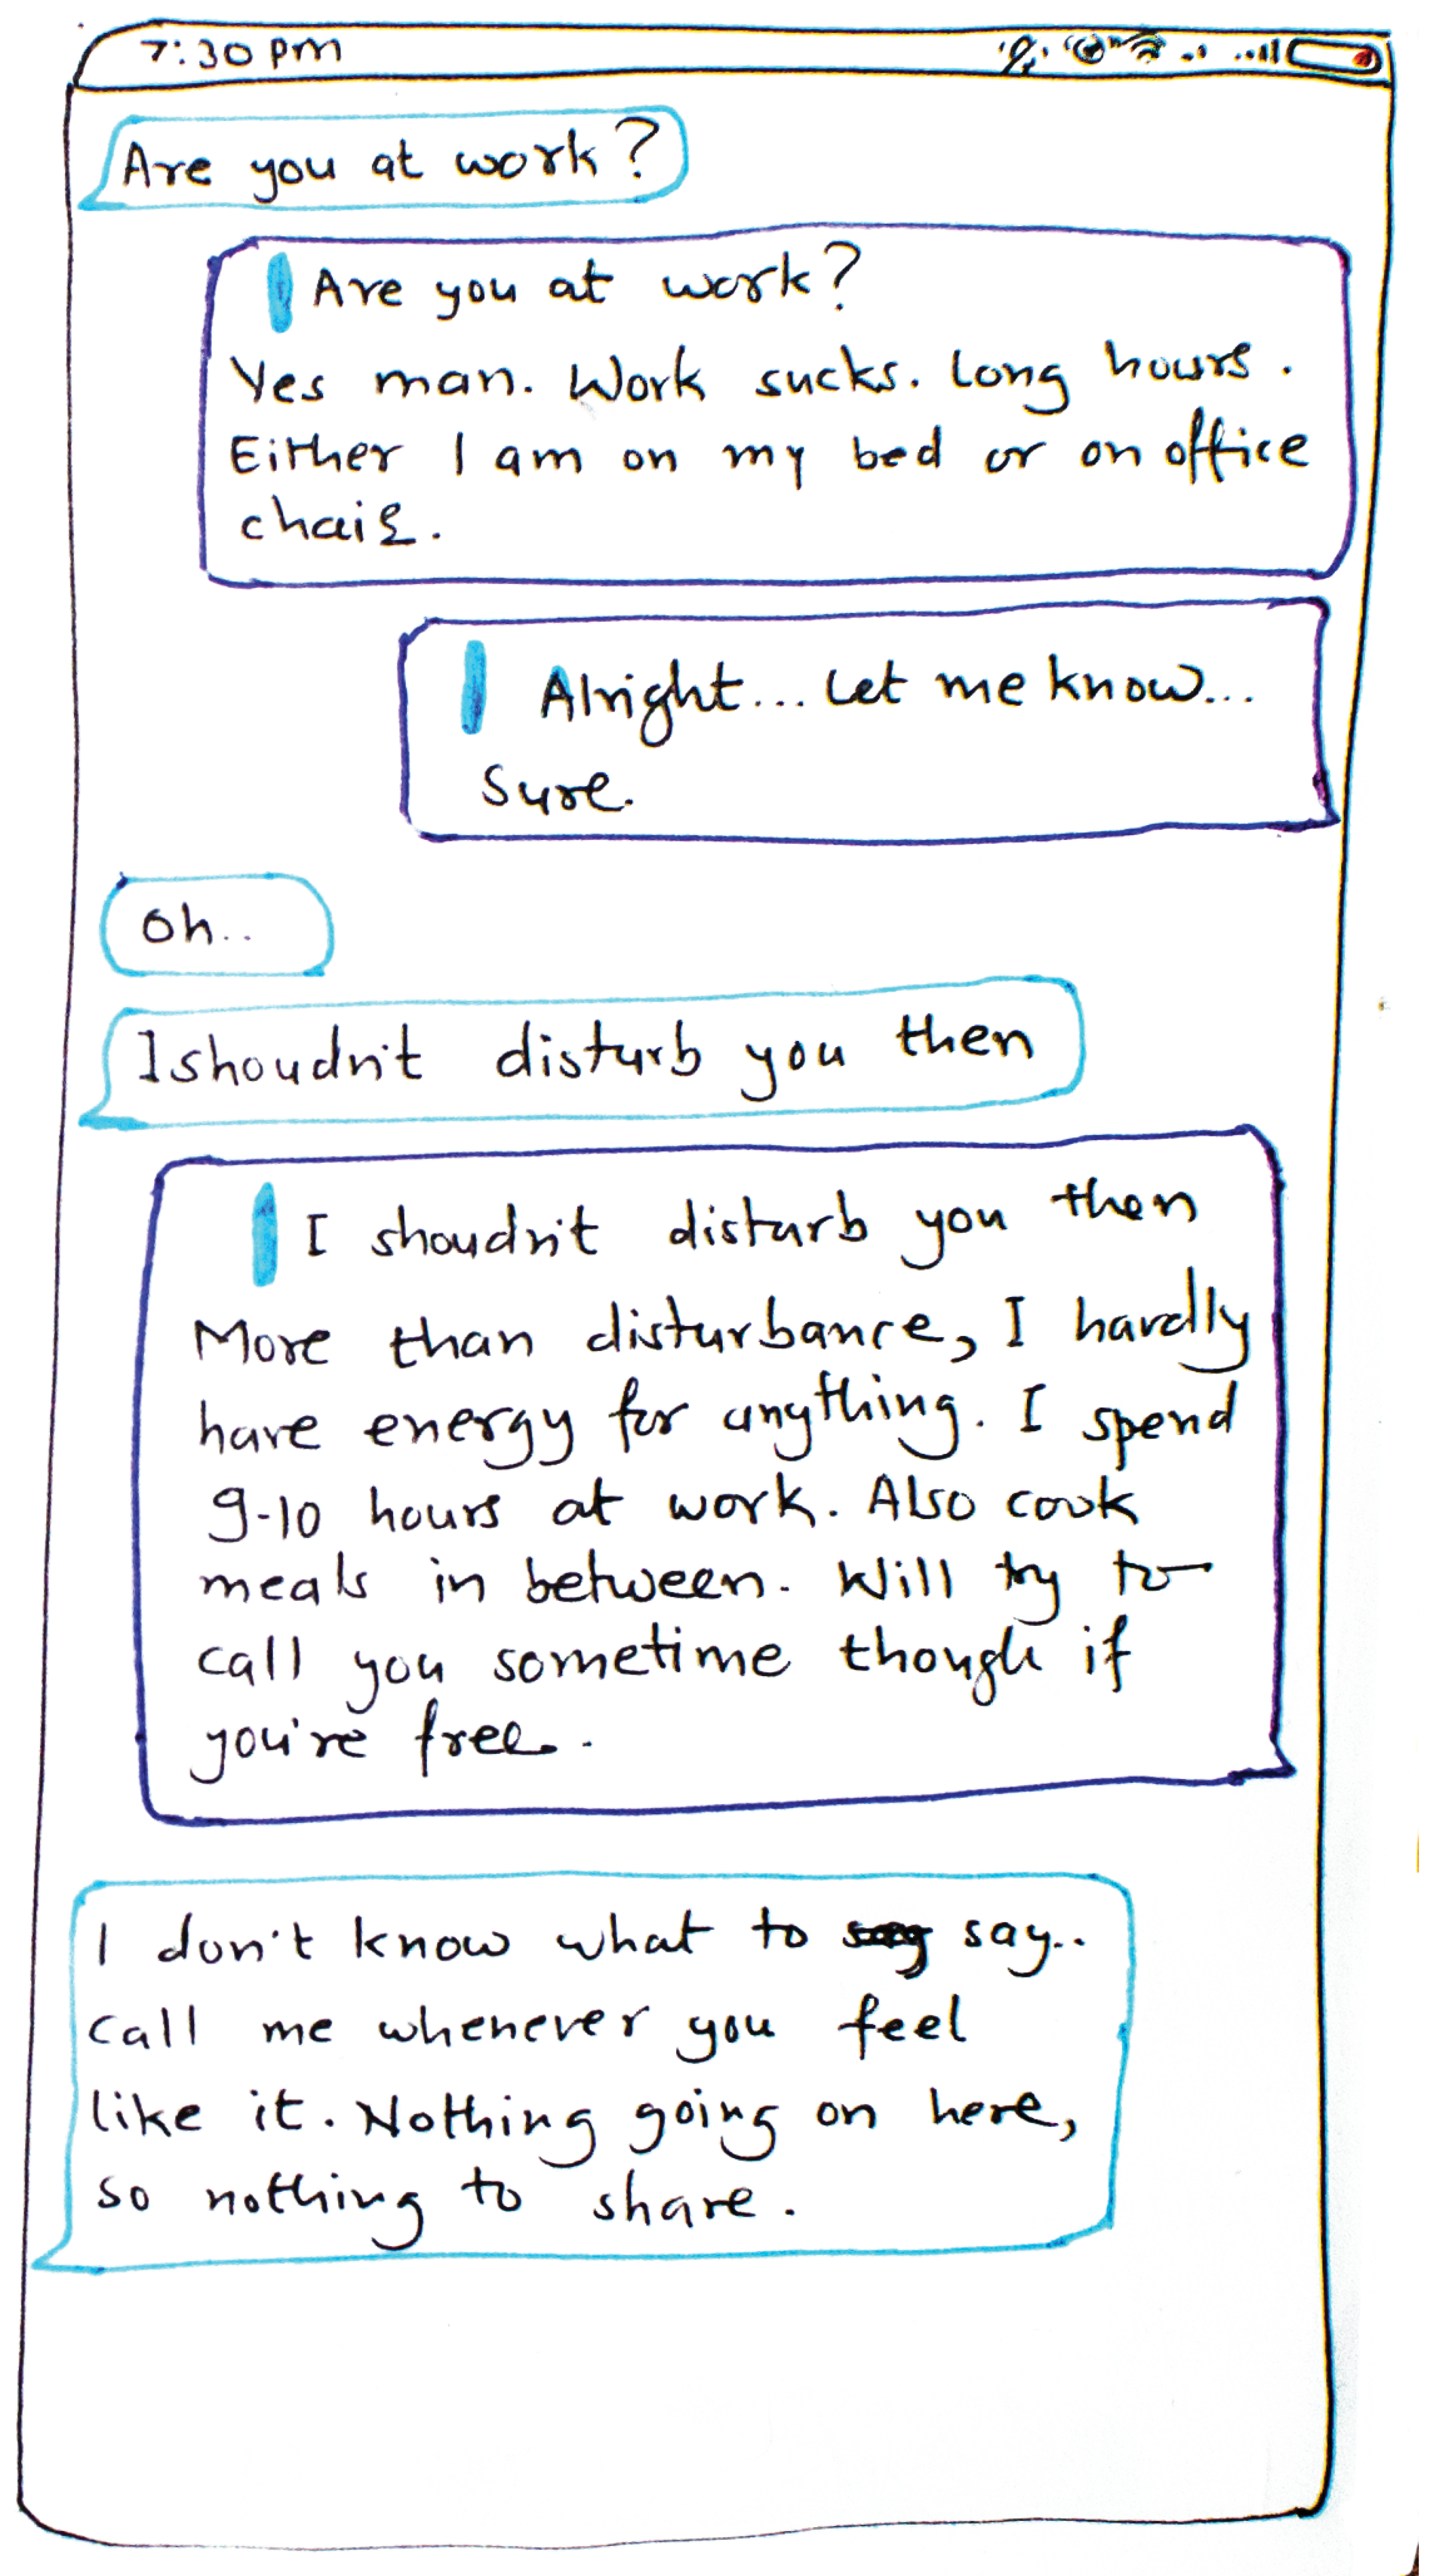 7:30 pm
Are you at work?
Are you at work?
Yes man. Work sucks. Long hours.
Either I am on my bed or on office
chair.
Alright... Let me know...
Sure.
Oh..
I shoudn't disturb you then
I shoudn't disturb you then
More than disturbance, I hardly
have energy for anything. I spend
9-10 hours at work. Also cook
meals in between. Will try to
call you sometime though if
you're free.
I don't know what to say..
Call me whenever you feel
like it. Nothing going on here,
so nothing to share.